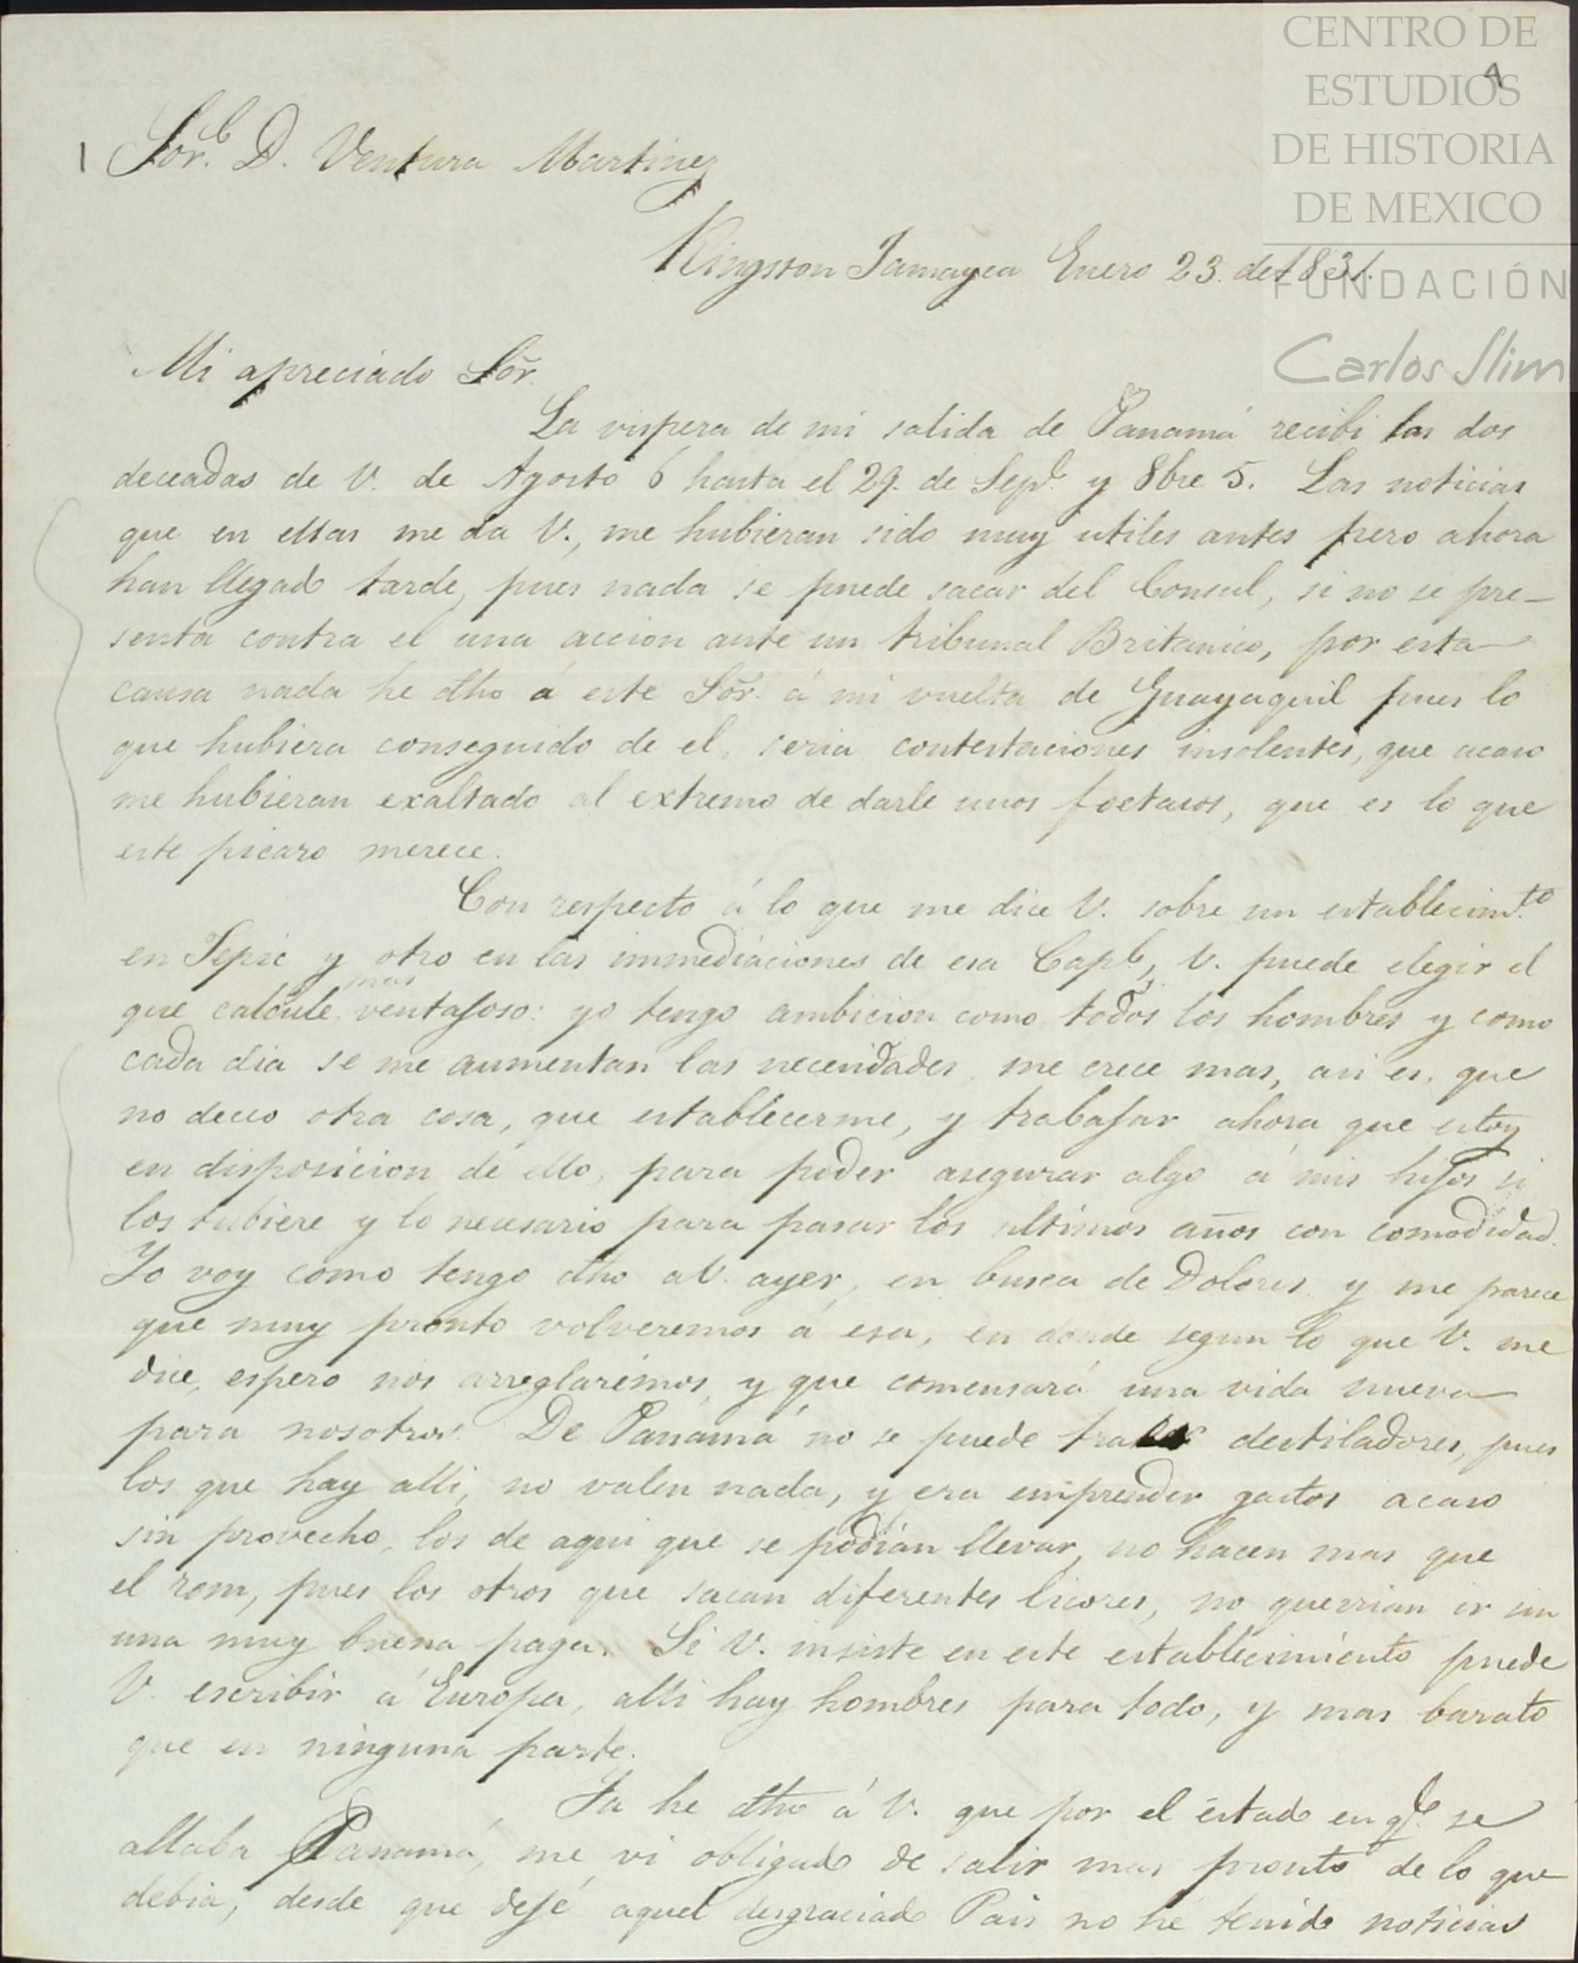 CENTRO DE
ESTUDIOS
DE HISTORIA
DE MEXICO
FUNDACIÓN
Carlos Slim
4
1 Sor. D. Ventura Martinez
Kingston Jamayca Enero 23. de 1831.
Mi apreciado Sōr.
La vispera de mi salida de Panamá recibi las dos
deceadas de V. de Agosto 6 hasta el 29. de Sepe. y 8bre 5. Las noticias
que en ellas me da V., me hubieran sido muy utiles antes pero ahora
han llegado tarde, pues nada se puede sacar del Consul, si no se pre-
senta contra el una accion ante un tribunal Britanico, por esta
causa nada he dho á este Sōr. á mi vuelta de Guayaquil pues lo
que hubiera conseguido de el, seria contestaciones insolentes, que acaso
me hubieran exaltado al extremo de darle unos foetasos, que es lo que
este picaro merece.
Con respecto á lo que me dice V. sobre un establecimto.
en Tepic y otro en las immediaciones de esa Capl, V. puede elegir el
que calcule mas ventajoso: yo tengo ambicion como todos los hombres y como
cada dia se me aumentan las necesidades, me crece mas, asi es, que
no deceo otra cosa, que establecerme, y trabajar ahora que estoy
en disposicion de ello, para poder asegurar algo á mis hijos si
los tubiere y lo necesario para pasar los ultimos años con comodidad.
Yo voy como tengo dho a V. ayer, en busca de Dolores y me parece
que muy pronto volveremos á esa, en donde segun lo que V. me
dice, espero nos arreglarémos, y que comensará una vida nueva
para nosotros. De Panamá no se puede traer destiladores, pues
los que hay alli, no valen nada, y era emprender gastos acaso
sin provecho, los de aqui que se podian llevar, no hacen mas que
el rom, pues los otros que sacan diferentes licores, no querrian ir sin
una muy buena paga. Si V. insiste en este establecimiento puede
V. escribir á Europa, alli hay hombres para todo, y mas barato
que en ninguna parte.
Ya he dho á V. que por el estado en qe. se
allaba Panamá, me vi obligado de salir mas pronto de lo que
debia, desde que dejé aquel desgraciado Pais no he tenido noticias